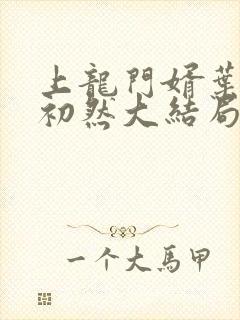 上龍門婿葉
初然大結局
一个大馬甲